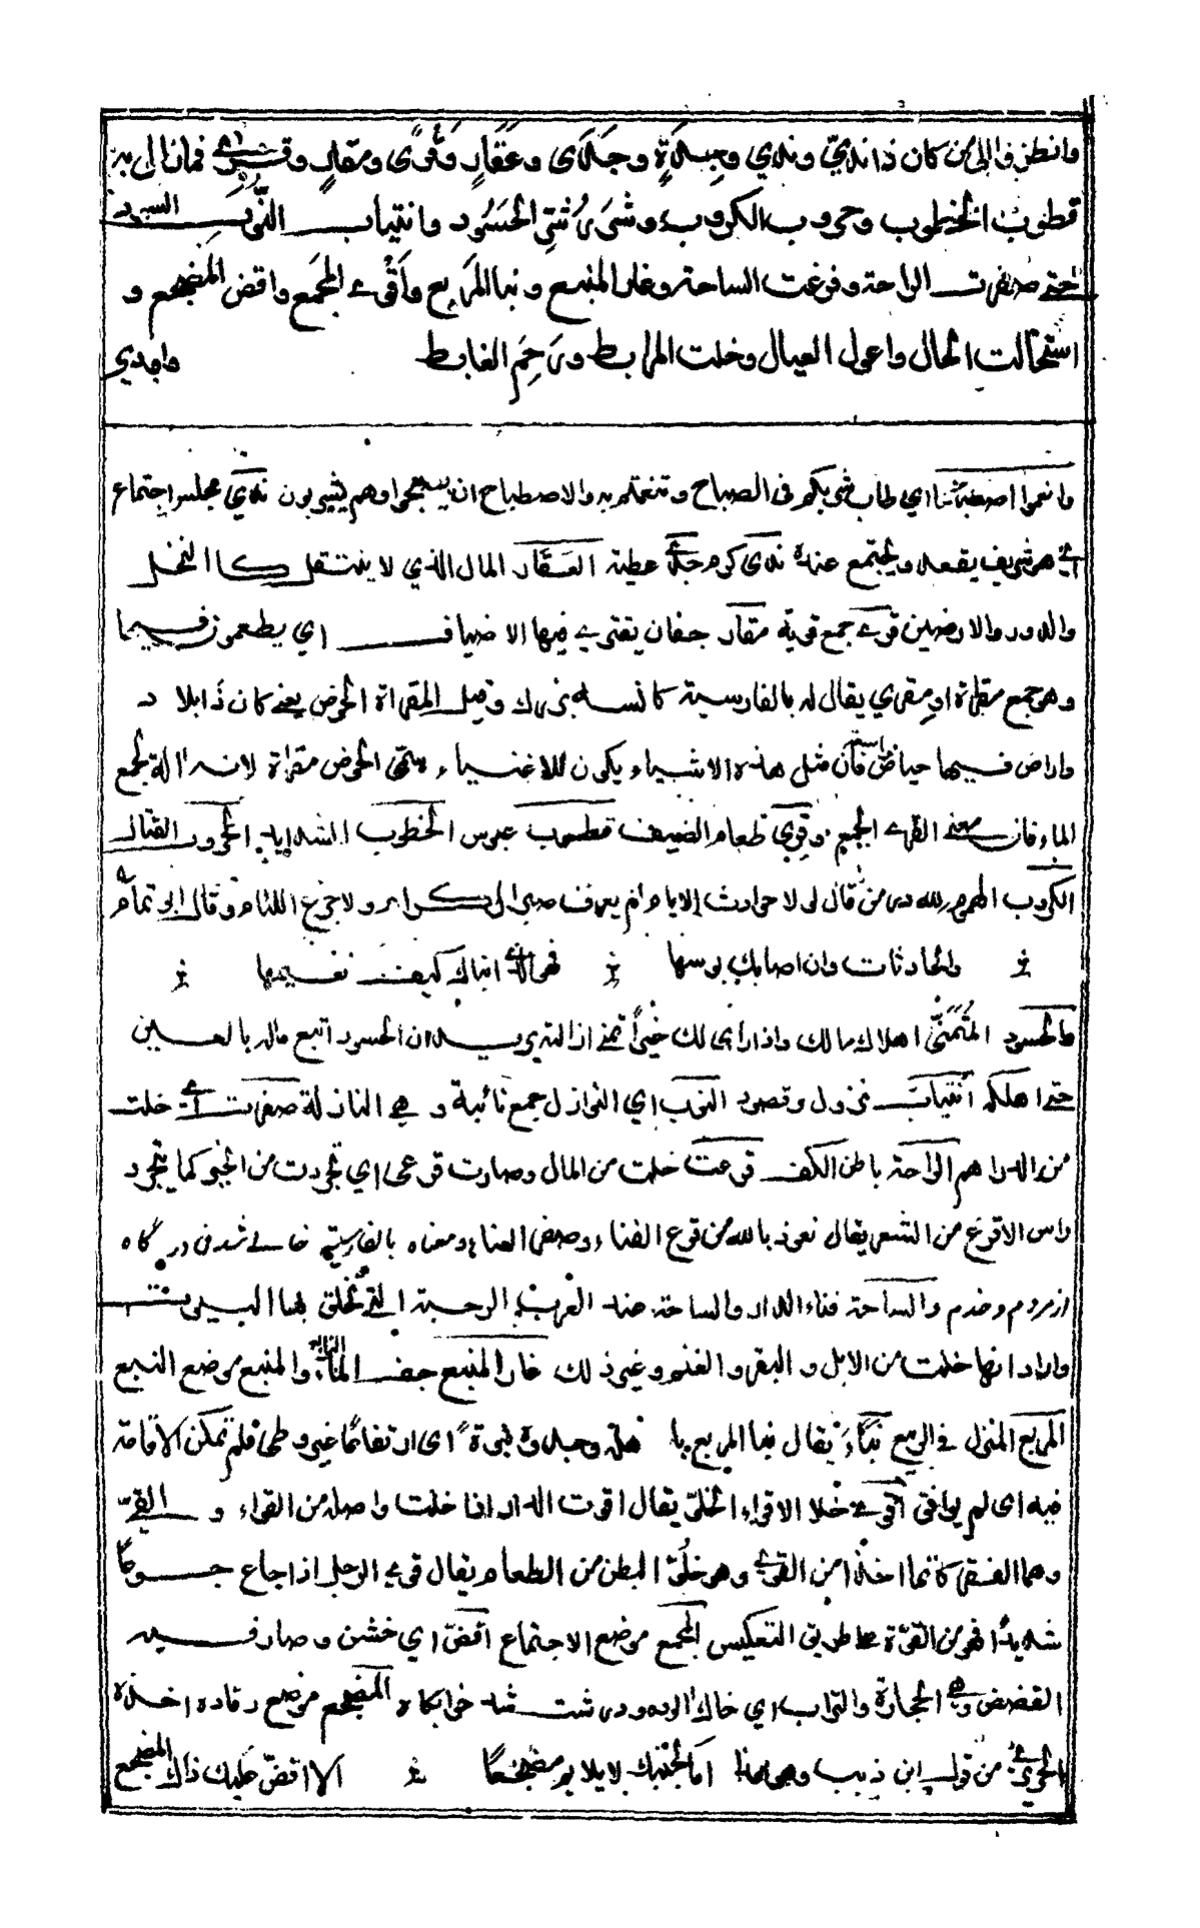 وانظروا الى من كان ذا ندي وندى وجدة وجدى وعقار وقرى ومقار وقرى فما زال به
قطوب الخطوب وحروب الكروب وشرر شر الحسود وانتياب النوب السود
حتى صفرت الراحة وقرعت الساحة وغار المنبع ونبا المربع واقوى المجمع واقض المضجع و
استحالت الحال واعول العيال وخلت المرابط ورحم الغابط واودي
وانعموا اصطباحا اي طاب شربكم في الصباح وتنعمتم به والاصطباح ان يصبحوا وهم يشربون ندي مجلس اجتماع
اي هو شريف يقعد ويجتمع عنده ندى كرم جدى عطية العقار المال الذي لا ينتقل كالنخل
والدور والارضين قرى جمع قرية مقار جفان يقرى فيها الاضياف اي يطعمون فيها
وهو جمع مقراة او مقرى يقال له بالفارسية كاسه بزرك وقيل المقراة الحوض يعنى كان ذا بلاد
واراض فيها حياض فان مثل هذه الاشياء يكون للاغنياء وسمى الحوض مقراة لانه الة لجمع
الماء فان معنى القرى الجمع وقرى طعام الضيف قطوب عبوس الخطوب الشدايد الحروب القتال
الكروب الهموم لله در من قال لولا حوادث الايام لم يعرف صبر الكرام ولا جزع اللئام وقال ابو تمام
والحادثات وان اصابك بوسها فهو الذي انباك كيف نعيمها
والحسود المتمنى اهلاك مالك واذا راى لك خيرا تمنى ازالته يريد ان الحسود اتبع ماله بالعين
حتى اهلكه انتياب نزول وقصود النوب اي النوازل جمع نائبة وهي النازلة صفرت اي خلت
من الدراهم الراحة باطن الكف قرعت خلت من المال وصارت قرعى اي تجردت من الخير كما يتجرد
راس الاقرع من الشعر يقال نعوذ بالله من قرع الفناء وصفر الاناء ومعناه بالفارسية خالى شدن درگاه
از مردم وخدم والساحة فناء الدار والساحة عند العرب الرحبة التى تخلق لها البيوت
واراد انها خلت من الابل والبقر والغنم وغير ذلك غار المنبع جف الماء والمنبع موضع النبع
المربع المنزل في الربيع نباء يقال نبا المربع بنا اى ارتفع فلم تمكن الاقامة
فيه اى لم يوافق اقوى خلا الاقواء الخلى يقال اقوت الدار اذا خلت واصله من القواء و القى
وهما القفر كانما اخذا من القوى وهو خلو البطن من الطعام يقال قوى الرجل اذا جاع جوعا
شديدا فهو من القوة على طريق التعكيس المجمع موضع الاجتماع اقض اي خشن وصار فيه
القضض وهي الحجارة والتراب اي خاك الوده ودرشت شد خوابگاه المضجع موضع رقاده اخذه
الحريرى من قول ابن ذويب وهو هذا ام ما لجنبك لا يلايم مضجعا الا اقض عليك ذاك المضجع